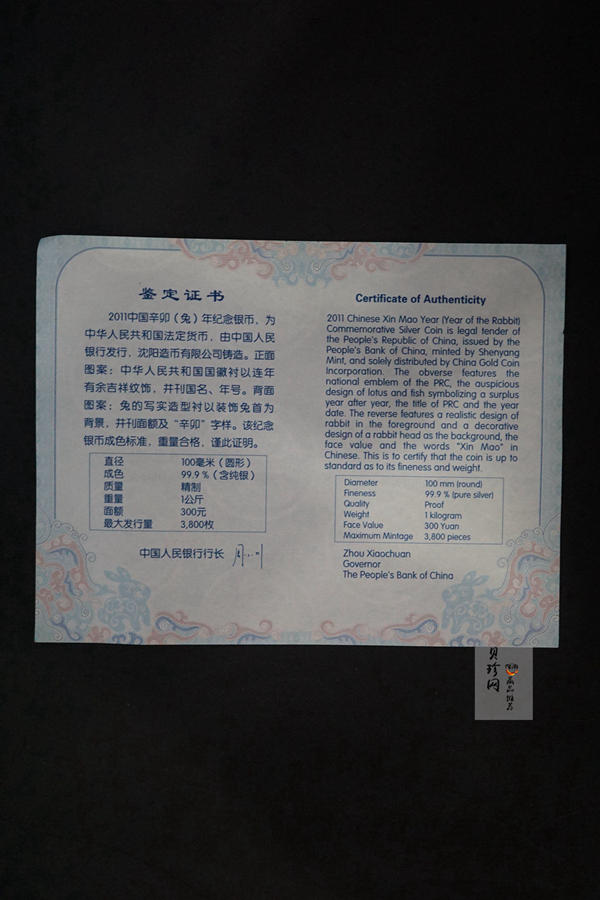 鉴定证书
2011中国辛卯（兔）年纪念银币，为
中华人民共和国法定货币，由中国人民
银行发行，沈阳造币有限公司铸造。正面
图案：中华人民共和国国徽衬以连年
有余吉祥纹饰，并刊国名、年号。背面
图案：兔的写实造型衬以装饰兔首为
背景，并刊面额及“辛卯”字样。该纪念
银币成色标准，重量合格，谨此证明。
直径 100毫米（圆形）
成色 99.9％（含纯银）
质量 精制
重量 1公斤
面额 300元
最大发行量 3,800枚
中国人民银行行长
Certificate of Authenticity
2011 Chinese Xin Mao Year (Year of the Rabbit)
Commemorative Silver Coin is legal tender of
the People's Republic of China, issued by the
People's Bank of China, minted by Shenyang
Mint, and solely distributed by China Gold Coin
Incorporation. The obverse features the
national emblem of the PRC, the auspicious
design of lotus and fish symbolizing a surplus
year after year, the title of PRC and the year
date. The reverse features a realistic design of
rabbit in the foreground and a decorative
design of a rabbit head as the background, the
face value and the words "Xin Mao" in
Chinese. This is to certify that the coin is up to
standard as to its fineness and weight.
Diameter 100 mm (round)
Fineness 99.9 % (pure silver)
Quality Proof
Weight 1 kilogram
Face Value 300 Yuan
Maximum Mintage 3,800 pieces
Zhou Xiaochuan
Governor
The People's Bank of China
贝珍网